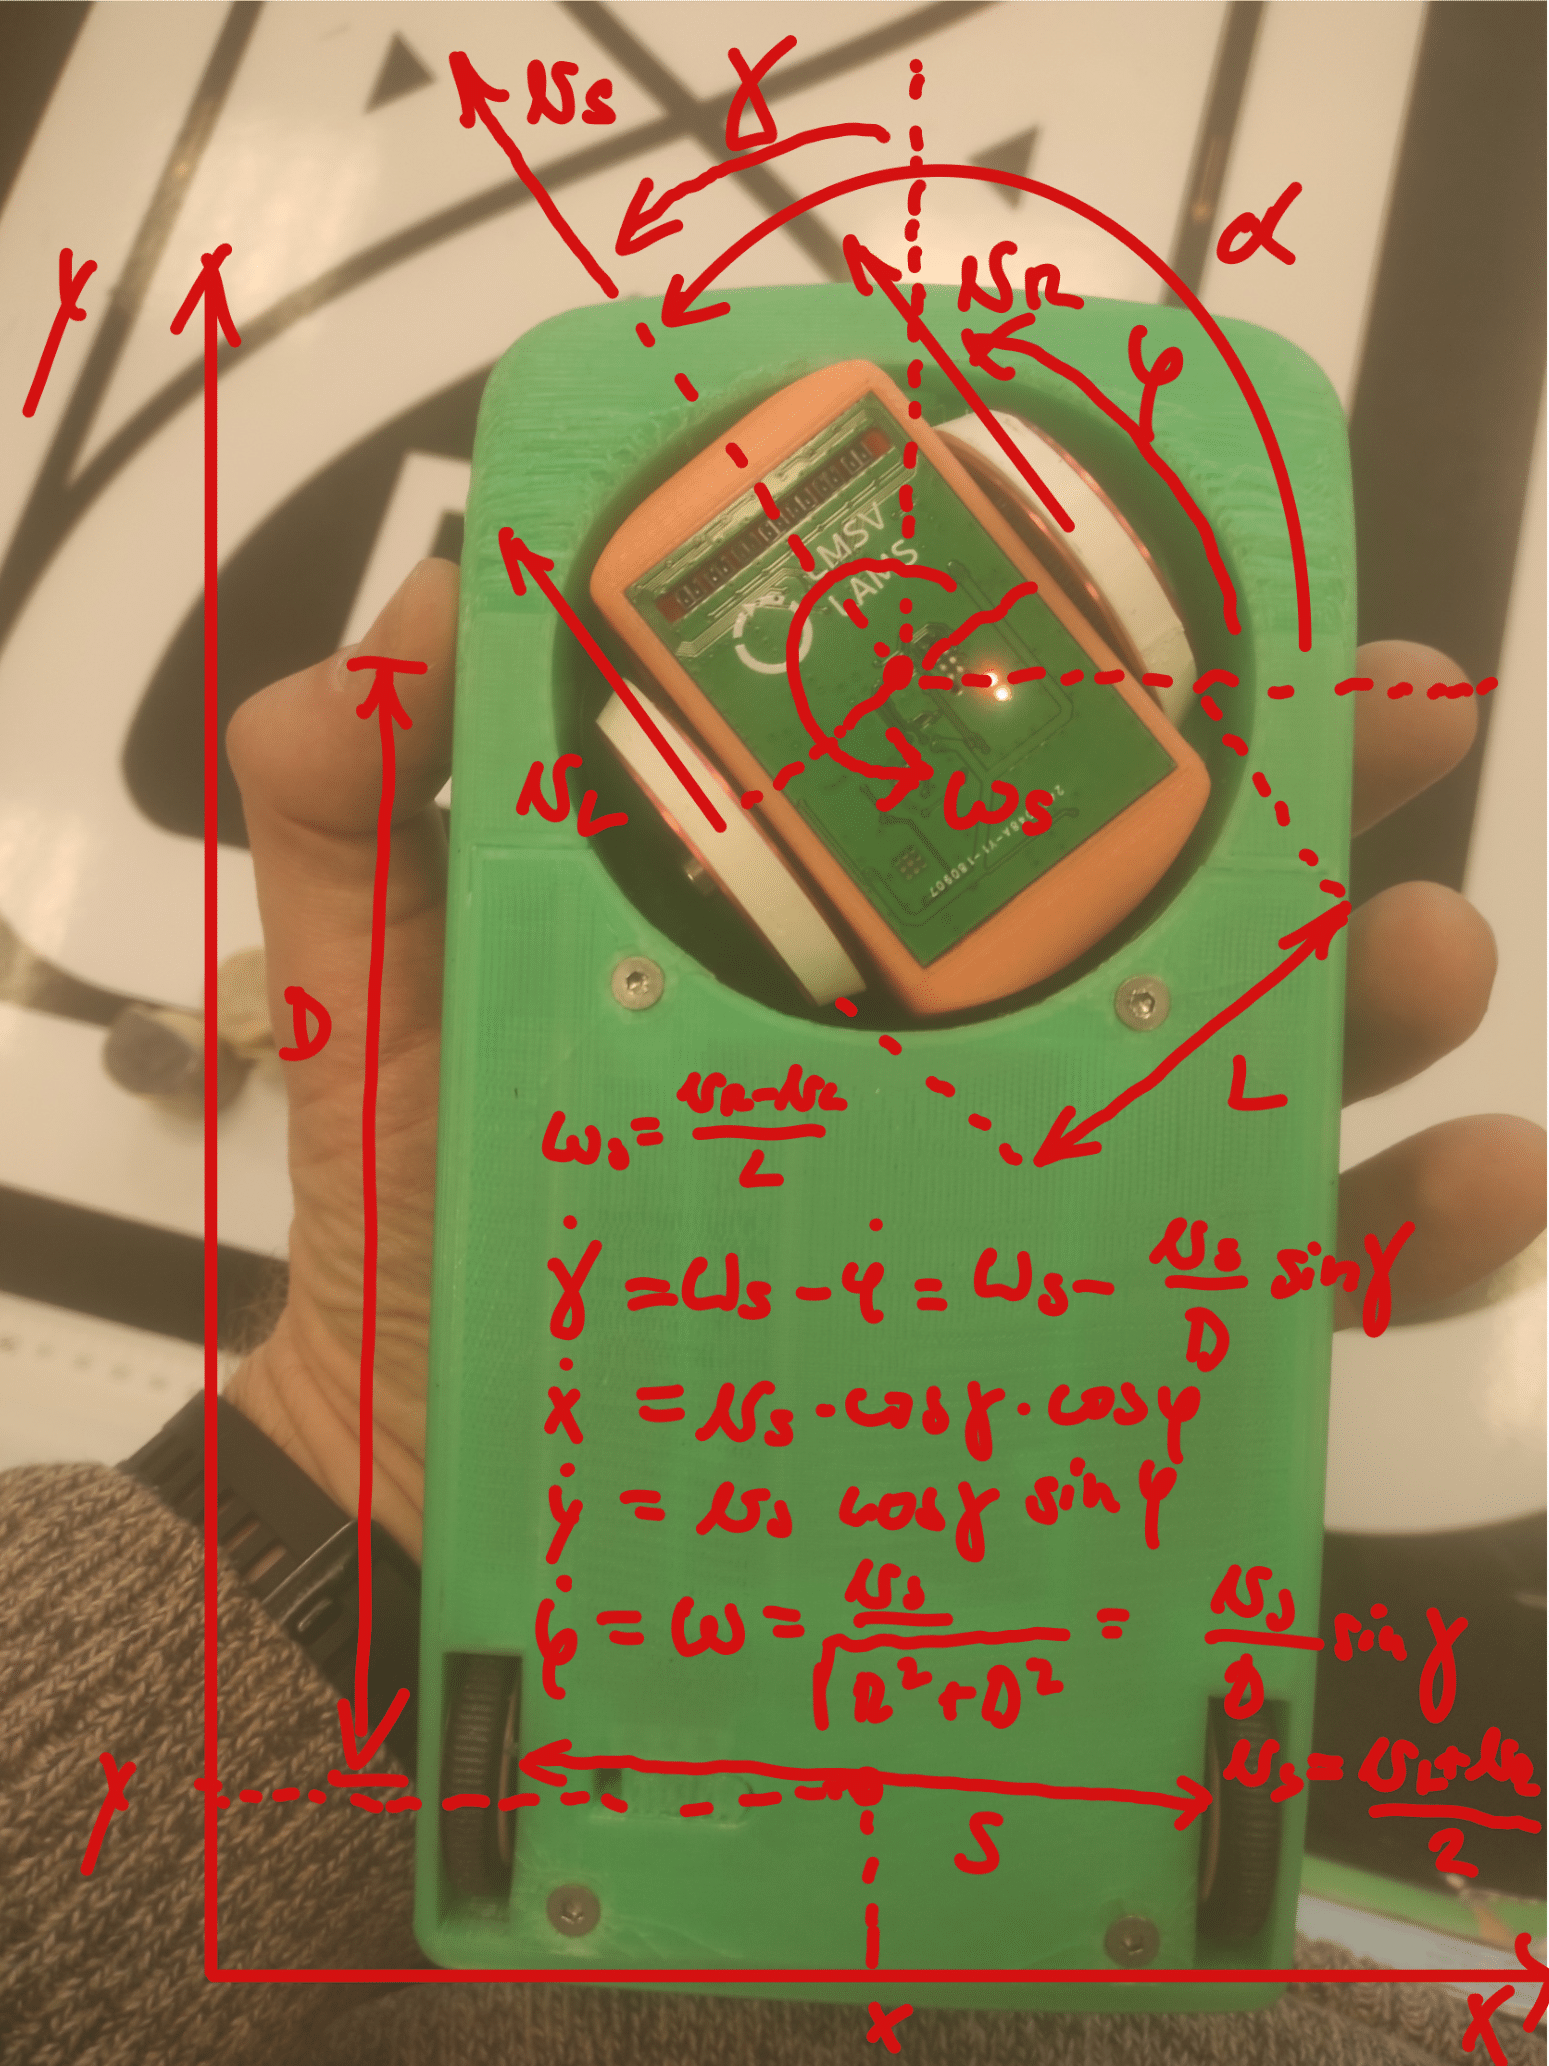 vs
γ
α
y
vR
φ
LMSV
LAMS
vL
ωs
D
L
ωs = (vR - vL) / L
γ̇ = ωs - φ̇ = ωs - (vs / D) sin γ
ẋ = vs · cos γ · cos φ
ẏ = vs cos γ sin φ
φ̇ = ω = vs / √(R² + D²) = (vs / D) sin γ
vs = (vL + vR) / 2
y
S
x
x